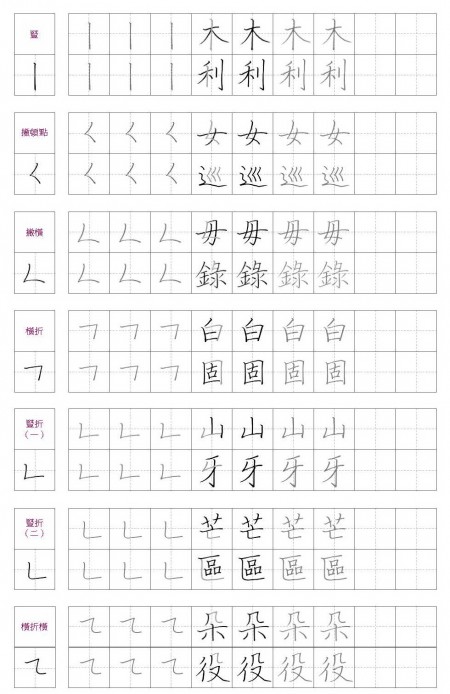 豎 丨 丨 丨 木 木 木 木
丨 丨 丨 丨 利 利 利 利
撇頓點 ㄑ ㄑ ㄑ 女 女 女 女
ㄑ ㄑ ㄑ ㄑ 巡 巡 巡 巡
撇橫 ㄥ ㄥ ㄥ 毋 毋 毋 毋
ㄥ ㄥ ㄥ ㄥ 錄 錄 錄 錄
橫折 ㇕ ㇕ ㇕ 白 白 白 白
㇕ ㇕ ㇕ ㇕ 固 固 固 固
豎折 ㇄ ㇄ ㇄ 山 山 山 山
（一）
㇄ ㇄ ㇄ ㇄ 牙 牙 牙 牙
豎折 ㇄ ㇄ ㇄ 芒 芒 芒 芒
（二）
㇄ ㇄ ㇄ ㇄ 區 區 區 區
橫折橫 ㇍ ㇍ ㇍ 朵 朵 朵 朵
㇍ ㇍ ㇍ ㇍ 役 役 役 役